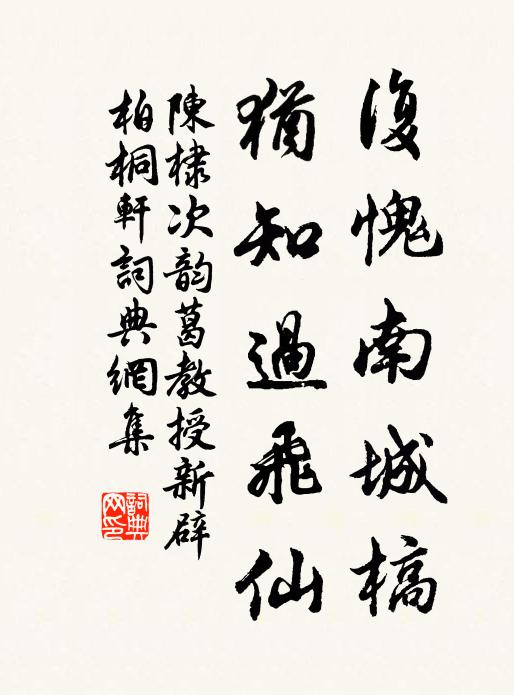 復愧南城槁
猶知過飛仙
陳棣次韵葛教授新辟
柏桐軒詞典網集
詞典網印